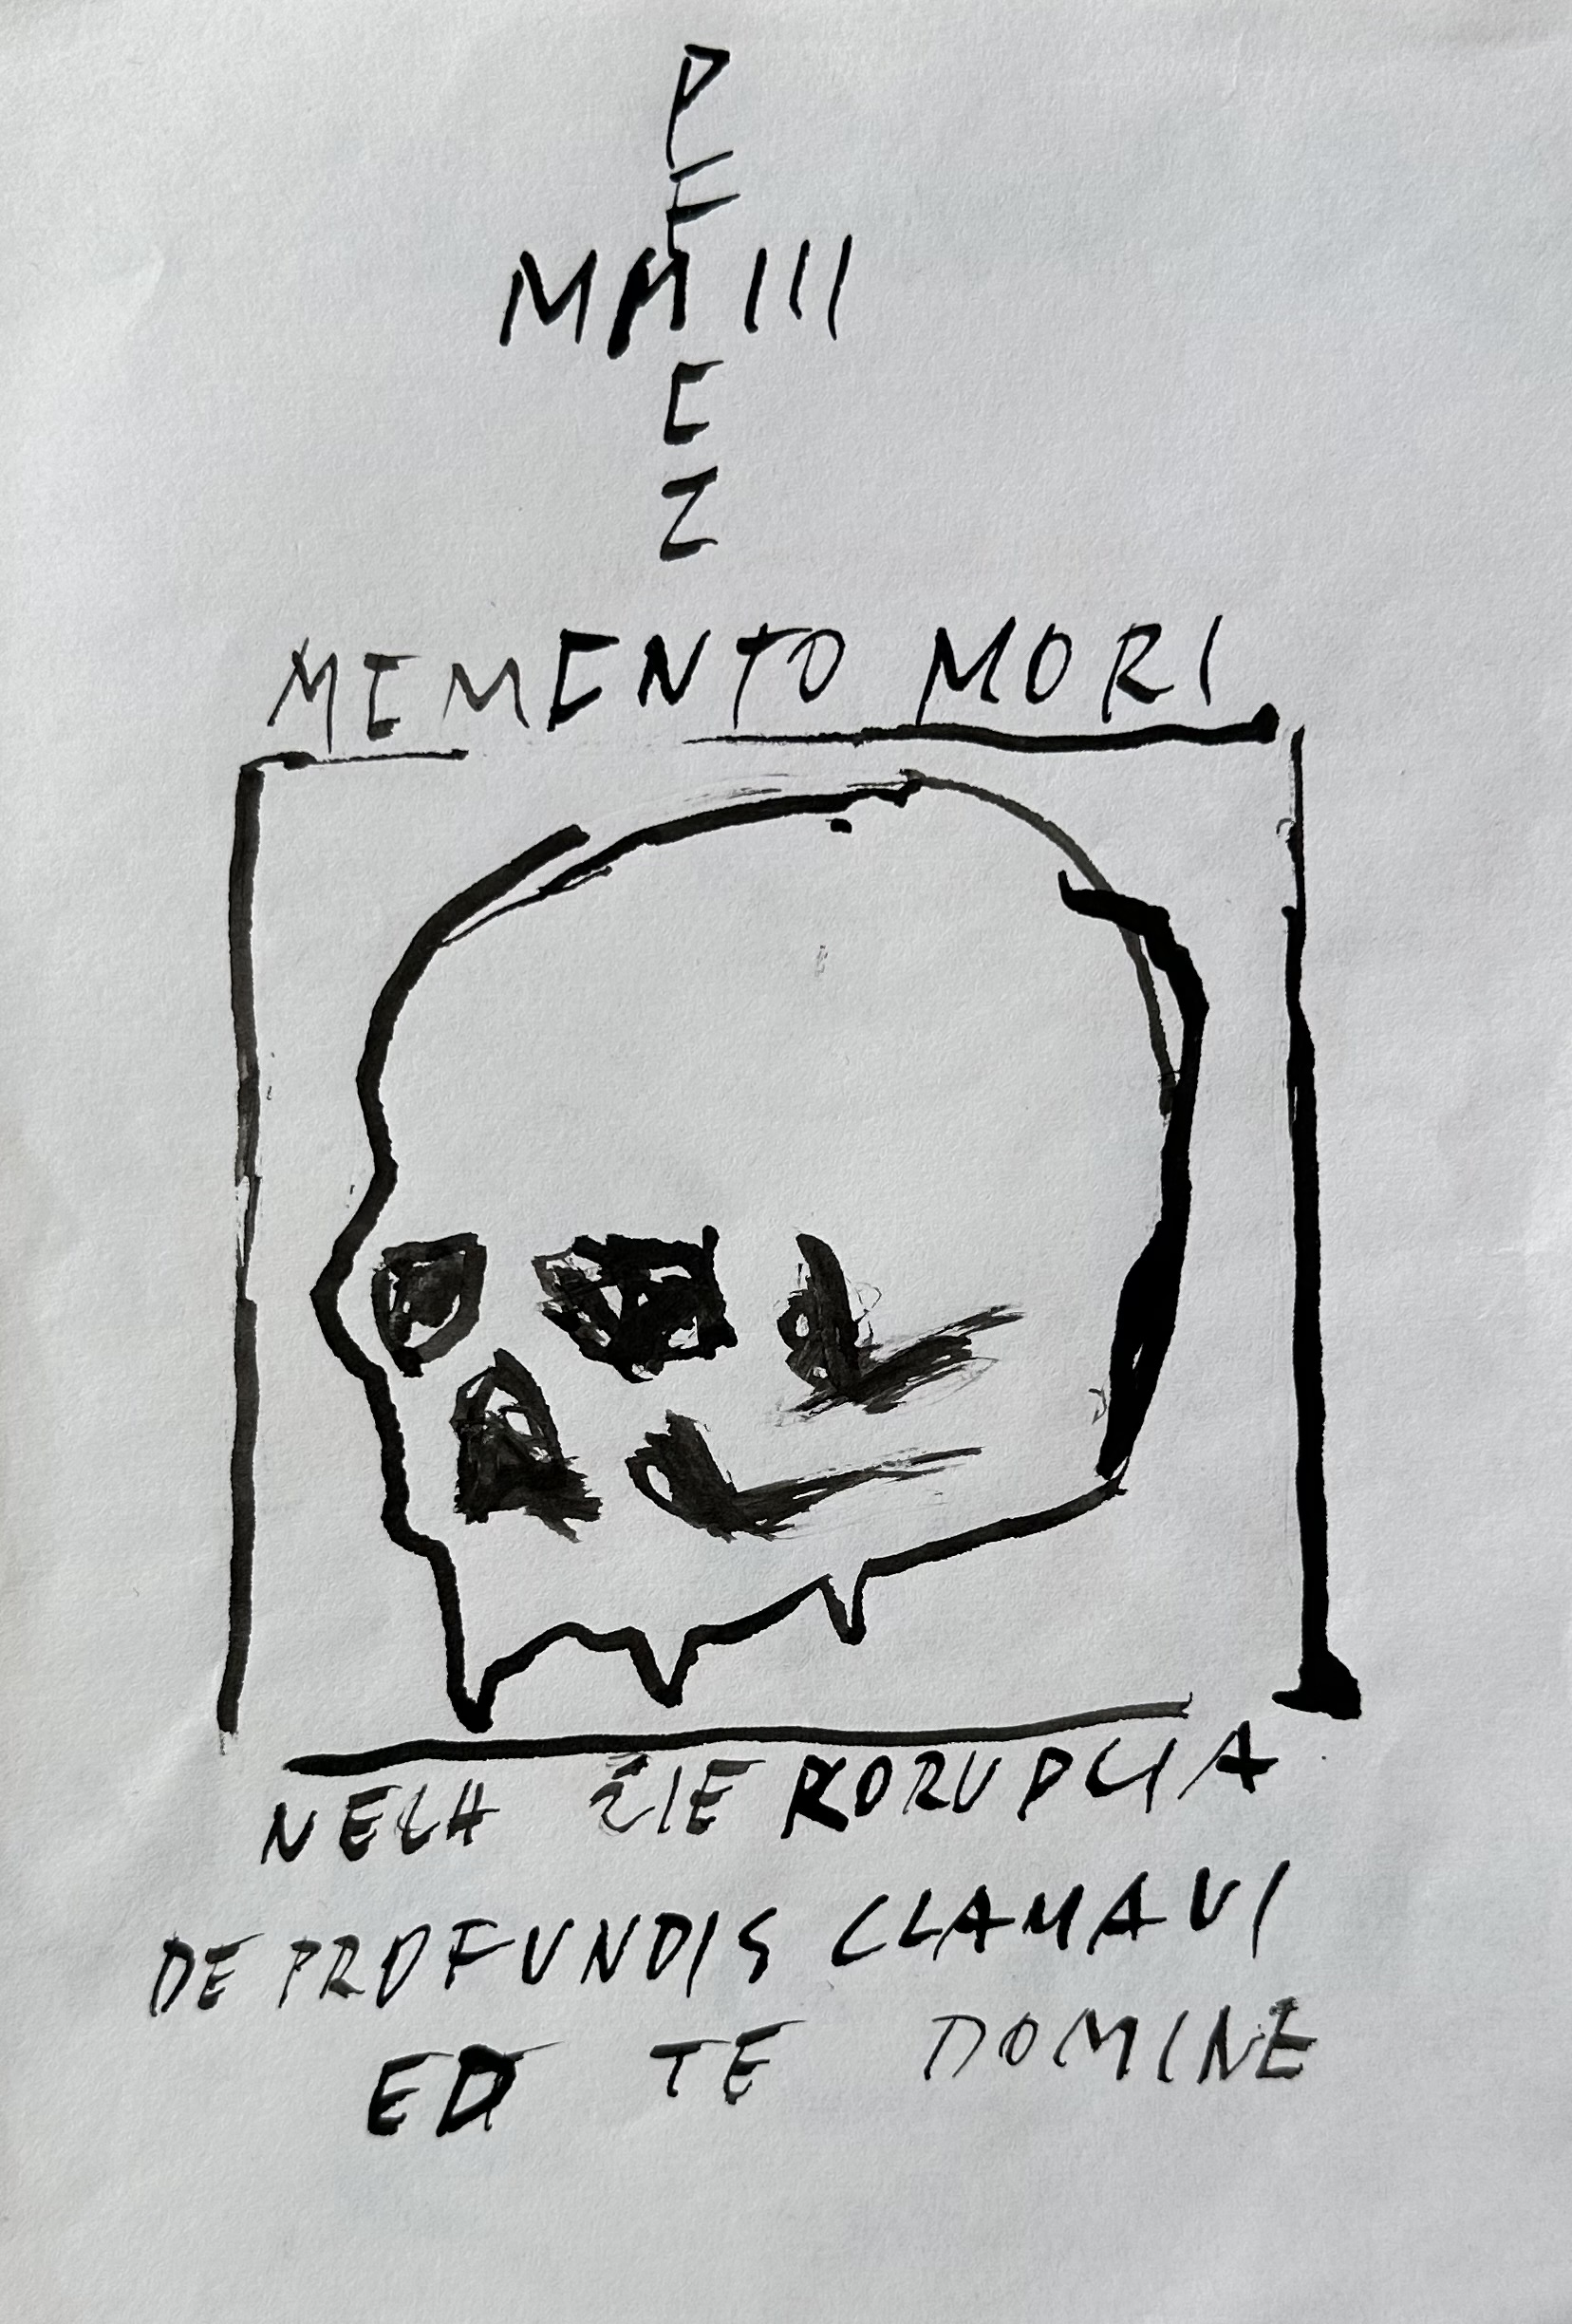 P
E
MMIII
E
Z
MEMENTO MORI
NECH ŽIE KORUPCIA
DE PROFUNDIS CLAMAVI
ED TE DOMINE